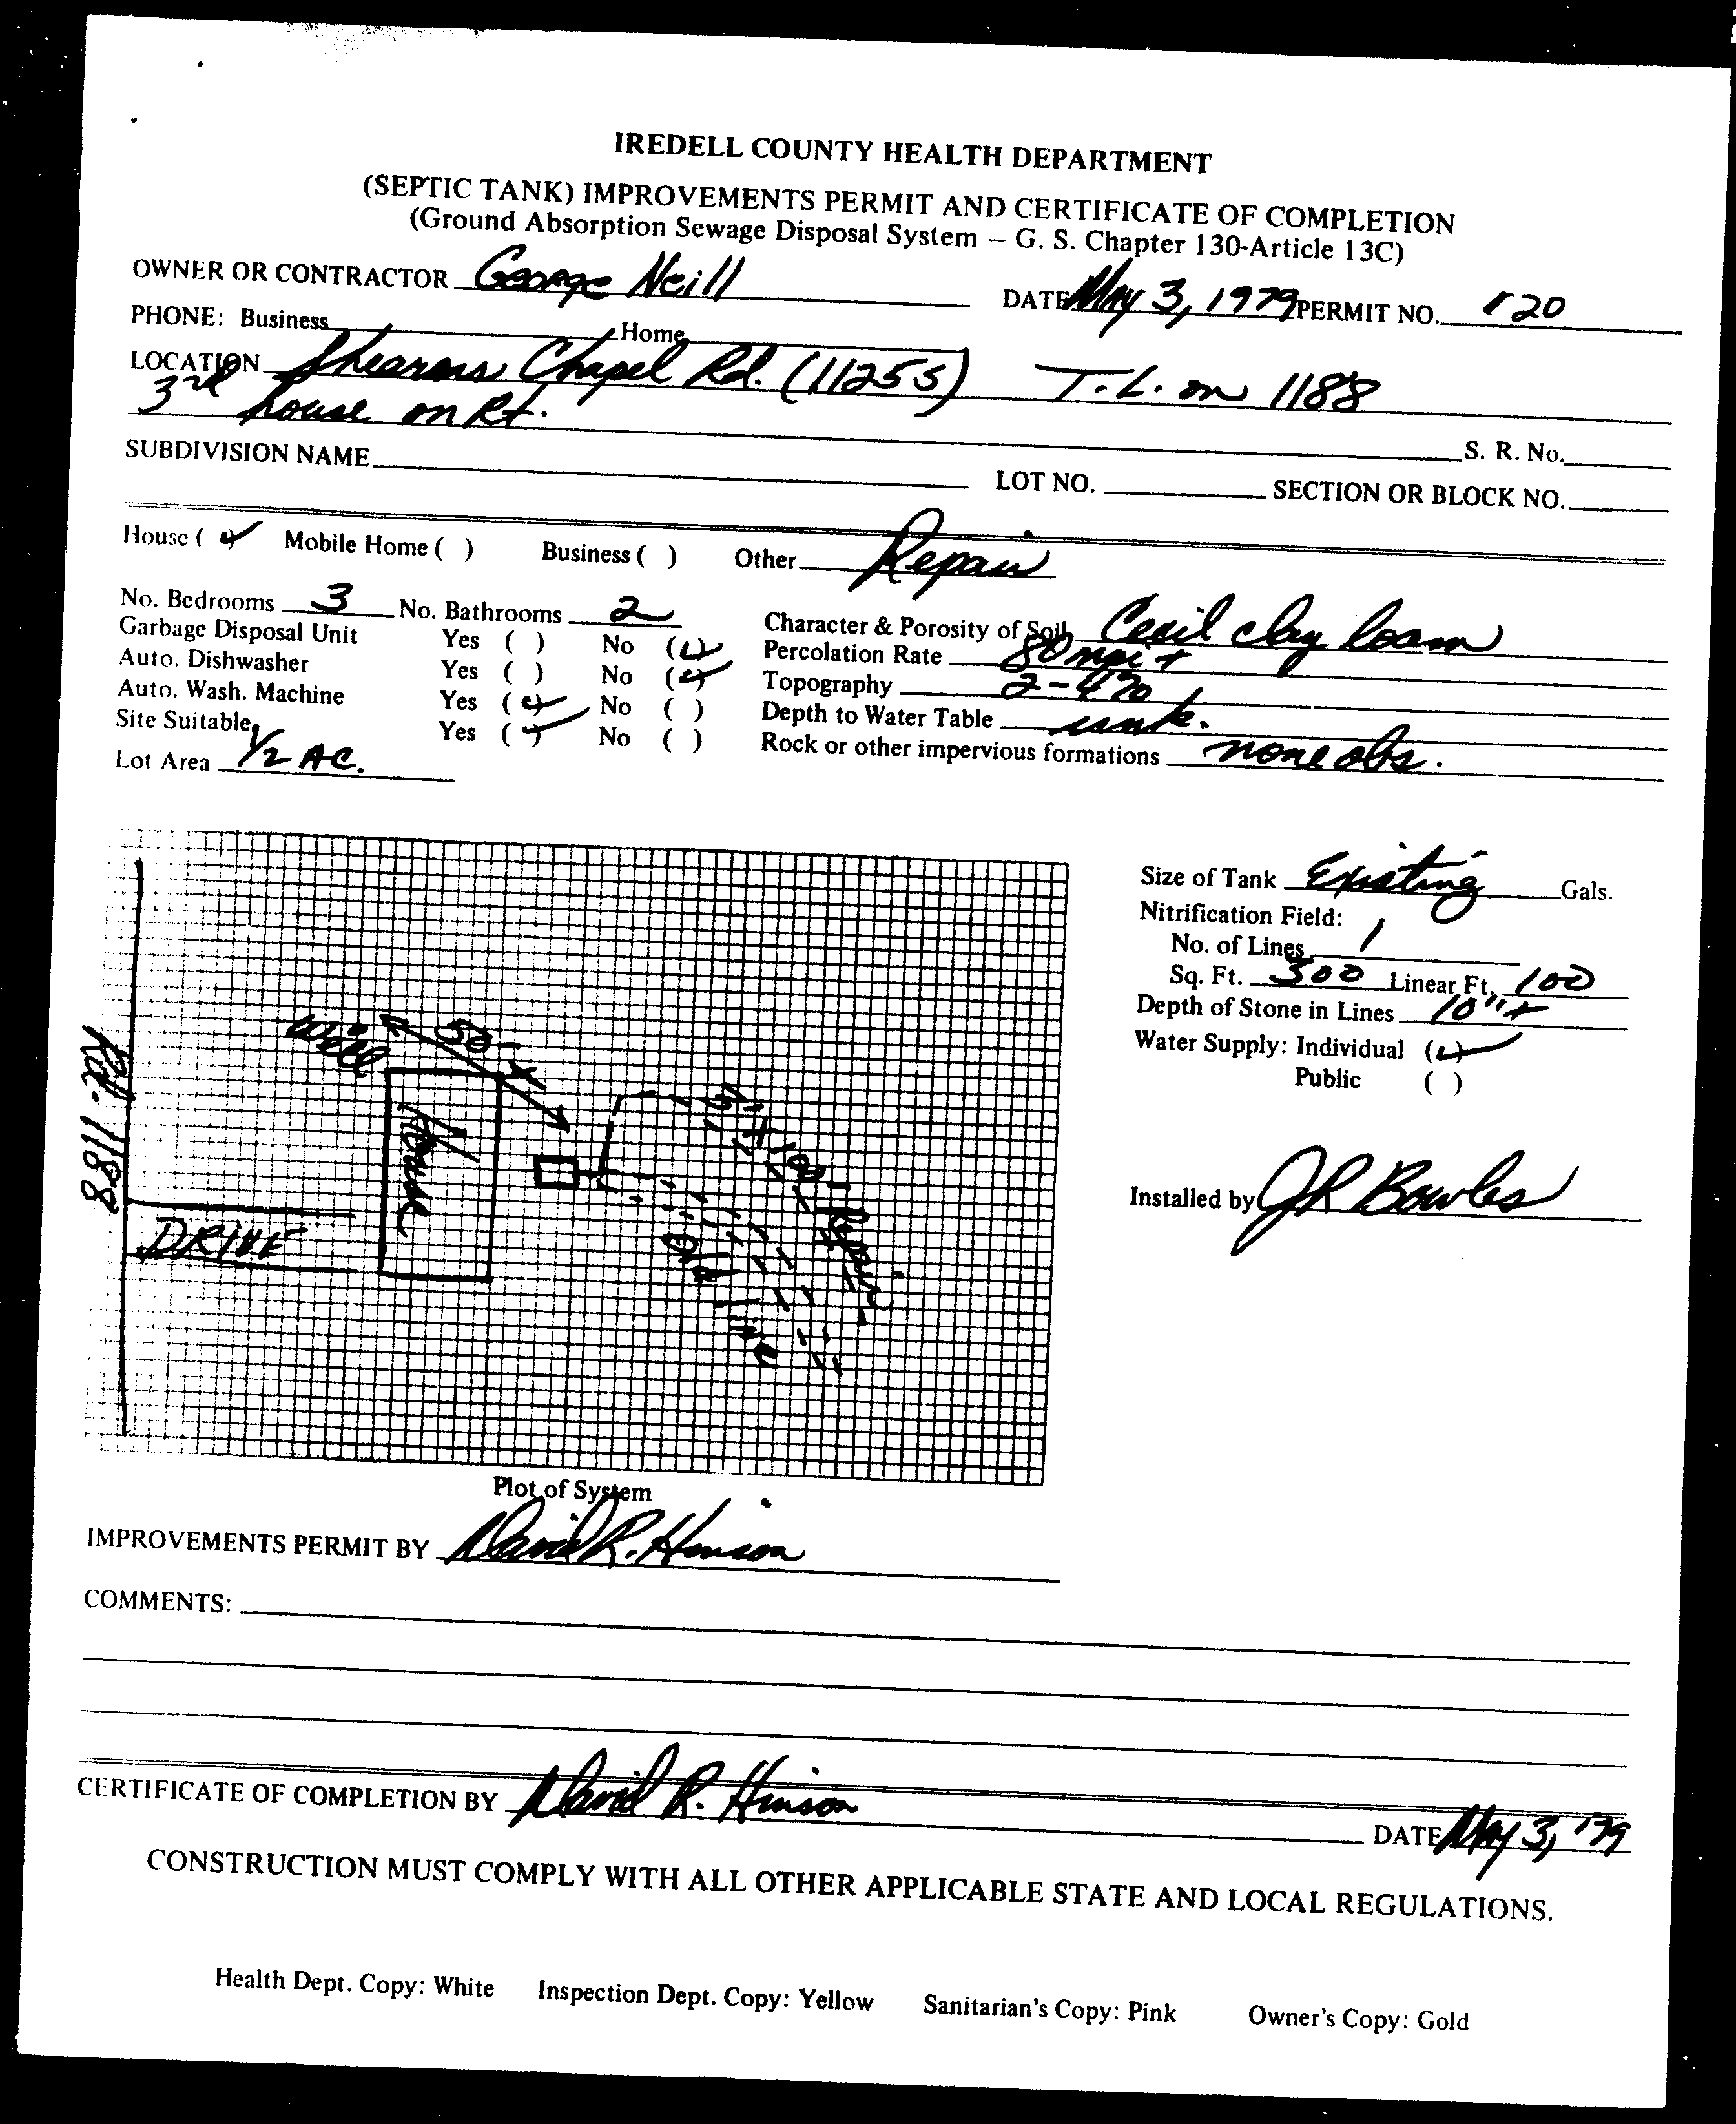 IREDELL COUNTY HEALTH DEPARTMENT
(SEPTIC TANK) IMPROVEMENTS PERMIT AND CERTIFICATE OF COMPLETION
(Ground Absorption Sewage Disposal System – G. S. Chapter 130-Article 13C)
OWNER OR CONTRACTOR George Neill DATE May 3, 1979 PERMIT NO. 120
PHONE: Business Home
LOCATION Shearers Chapel Rd. (1125S) T.L. on 1188
3rd house on Rt.
S. R. No.
SUBDIVISION NAME LOT NO. SECTION OR BLOCK NO.
House (✓) Mobile Home ( ) Business ( ) Other Repair
No. Bedrooms 3 No. Bathrooms 2 Character & Porosity of Soil Cecil clay loam
Garbage Disposal Unit Yes ( ) No (✓) Percolation Rate 80 mpi +
Auto. Dishwasher Yes ( ) No (✓) Topography 2-4%
Auto. Wash. Machine Yes (✓) No ( ) Depth to Water Table unk.
Site Suitable Yes (✓) No ( ) Rock or other impervious formations none obs.
Lot Area 1/2 AC.
Size of Tank Existing Gals.
Nitrification Field:
No. of Lines 1
Sq. Ft. 300 Linear Ft. 100
Depth of Stone in Lines 10"+
Water Supply: Individual (✓)
Public ( )
Installed by JR Bowles
Rd. 1188
well
50'+
House
DRIVE
Old line
3'x100' Repair
Plot of System
IMPROVEMENTS PERMIT BY David R. Hinson
COMMENTS:
CERTIFICATE OF COMPLETION BY David R. Hinson DATE May 3, '79
CONSTRUCTION MUST COMPLY WITH ALL OTHER APPLICABLE STATE AND LOCAL REGULATIONS.
Health Dept. Copy: White Inspection Dept. Copy: Yellow Sanitarian's Copy: Pink Owner's Copy: Gold